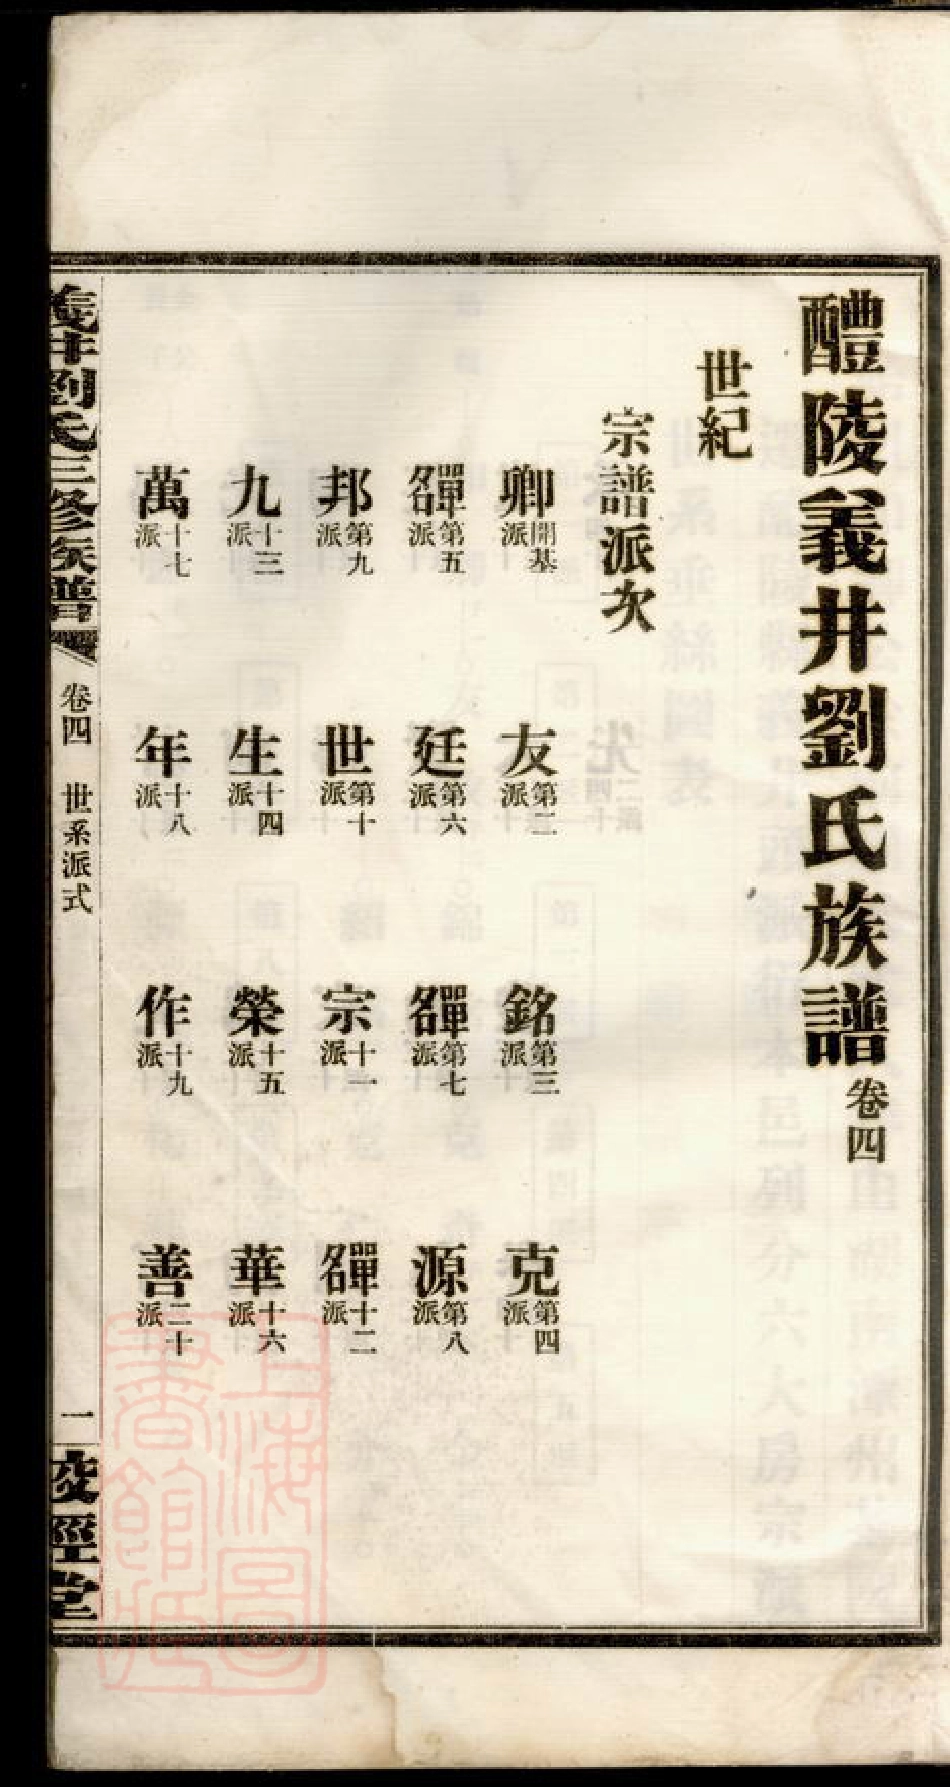 醴陵義井劉氏族譜 卷四
世紀
宗譜派次
卿 開基派 友 第二派 銘 第三派 克 第四派
名單 第五派 廷 第六派 名單 第七派 源 第八派
邦 第九派 世 第十派 宗 十一派 名單 十二派
九 十三派 生 十四派 榮 十五派 華 十六派
萬 十七派 年 十八派 作 十九派 善 二十派
義井劉氏三修族譜 卷四 世系派式 一
上海圖書館藏